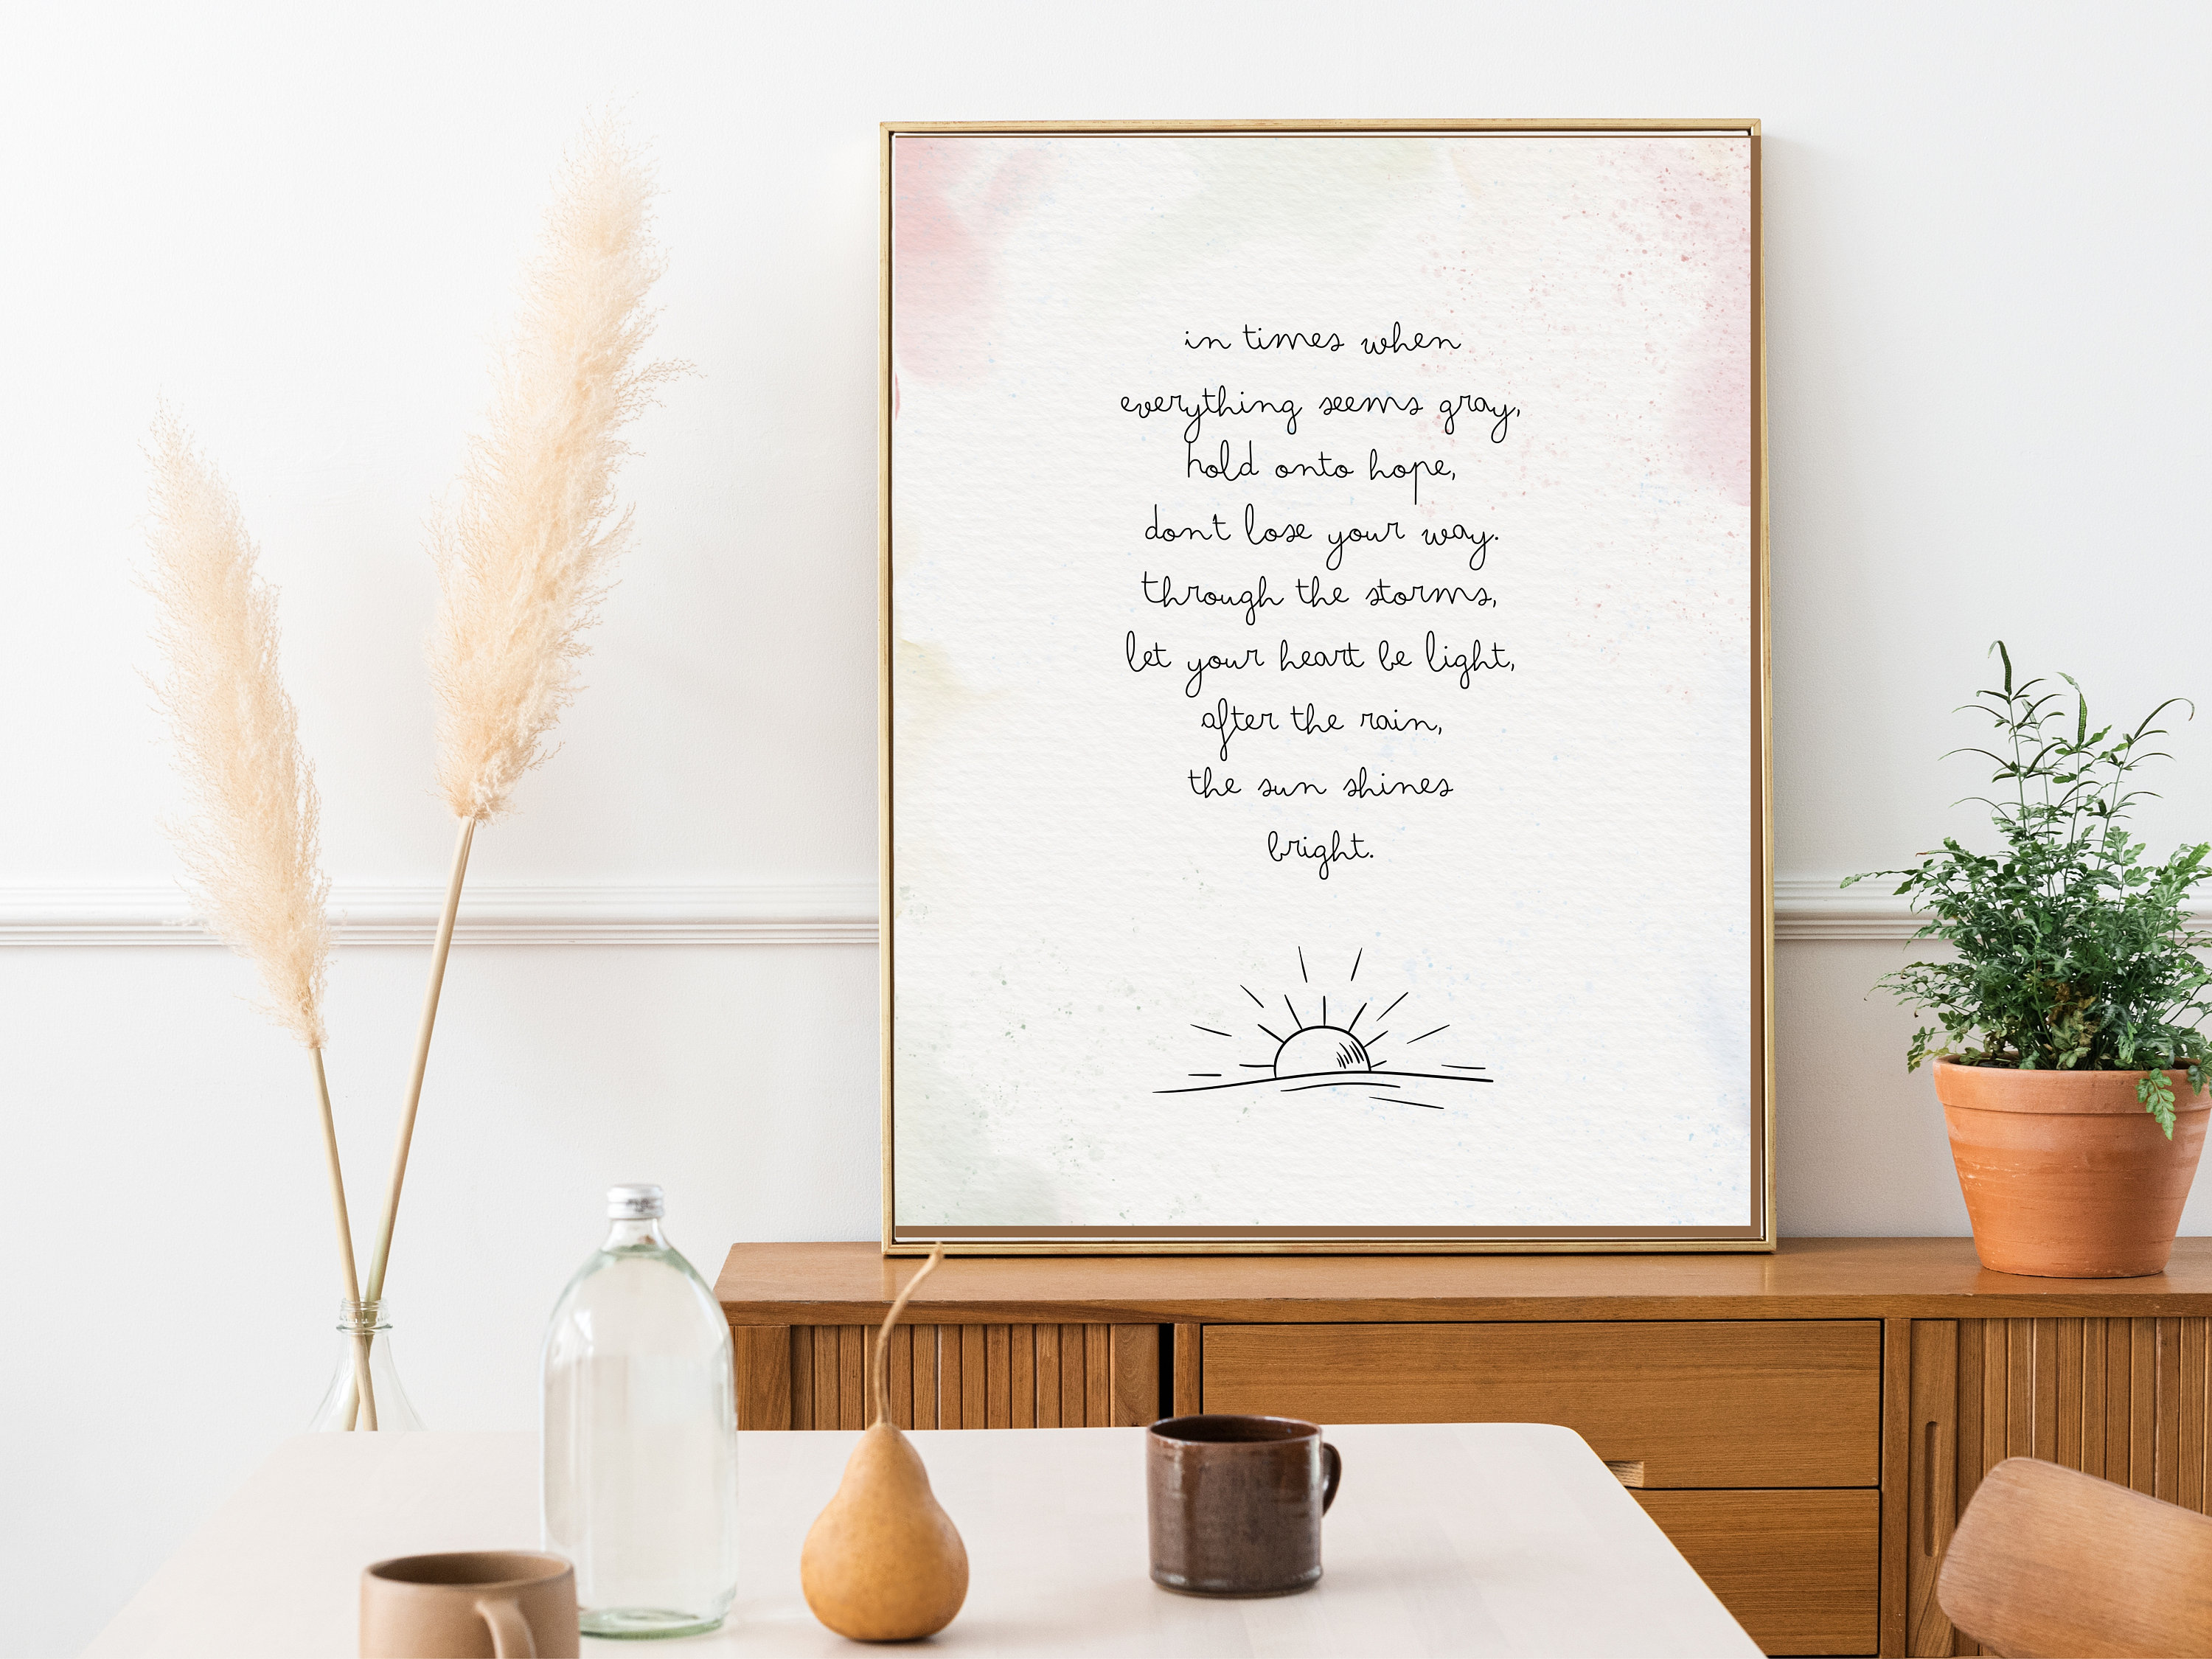 in times when
everything seems gray,
hold onto hope,
don't lose your way.
through the storms,
let your heart be light,
after the rain,
the sun shines
bright.